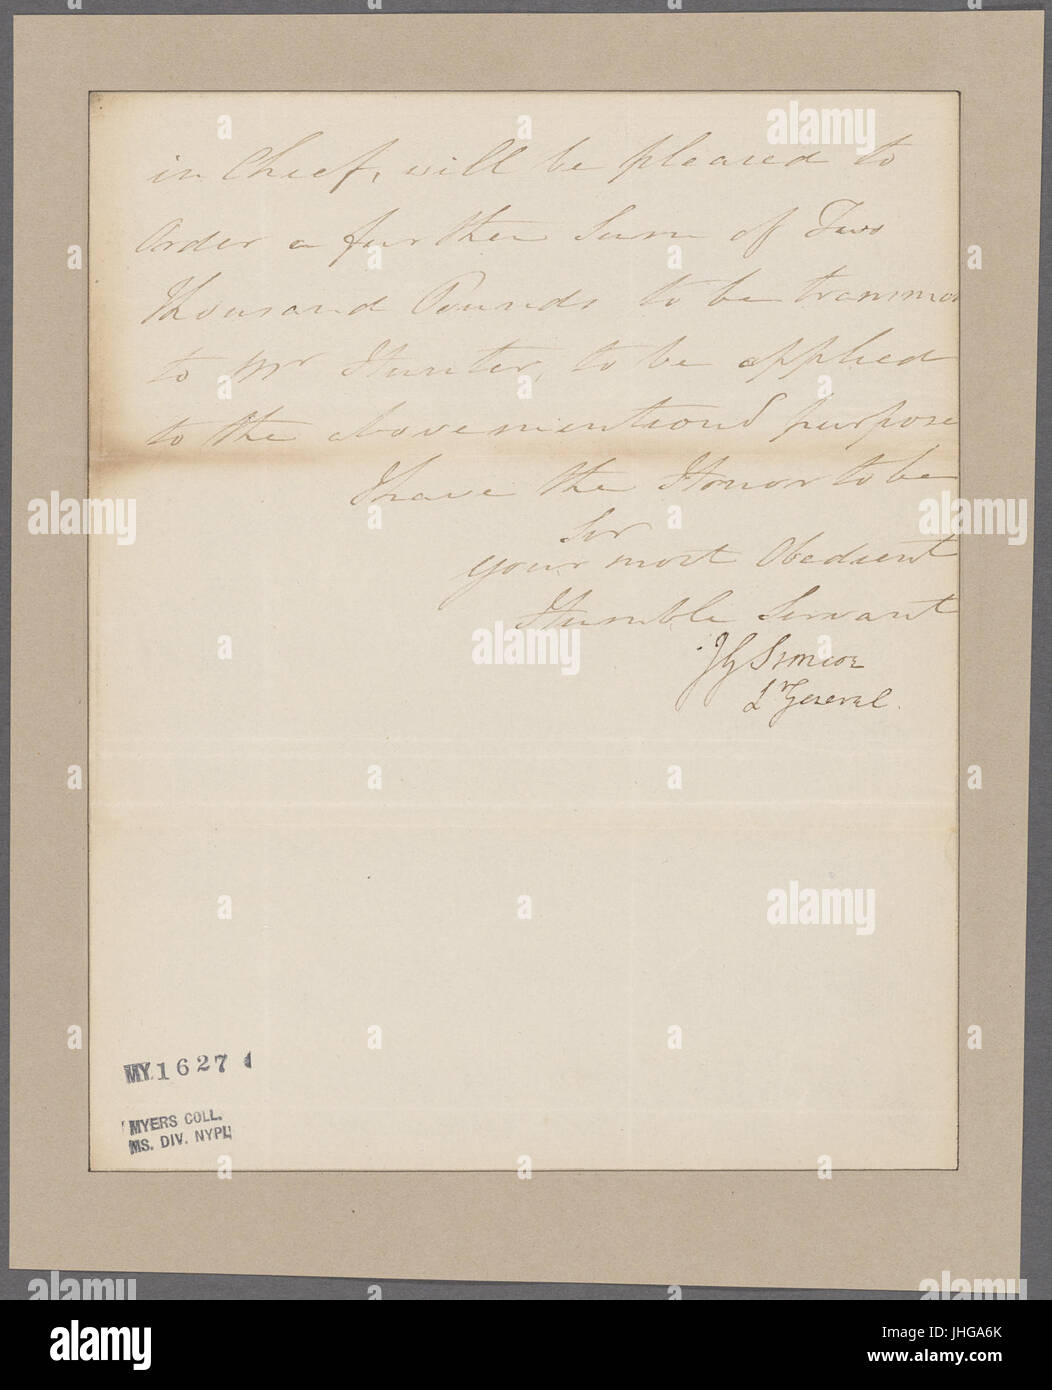 in Chief, will be pleased to
Order a further Sum of Two
Thousand Pounds to be
to Mr Hunter, to be applied
to the abovementioned purpose
I have the Honor to be
Sir
your most Obedient
Humble Servant
JG Simcoe
Lt General.
MY 1627
MYERS COLL.
MS. DIV. NYPL
alamy
Image ID: JHGA6K
www.alamy.com